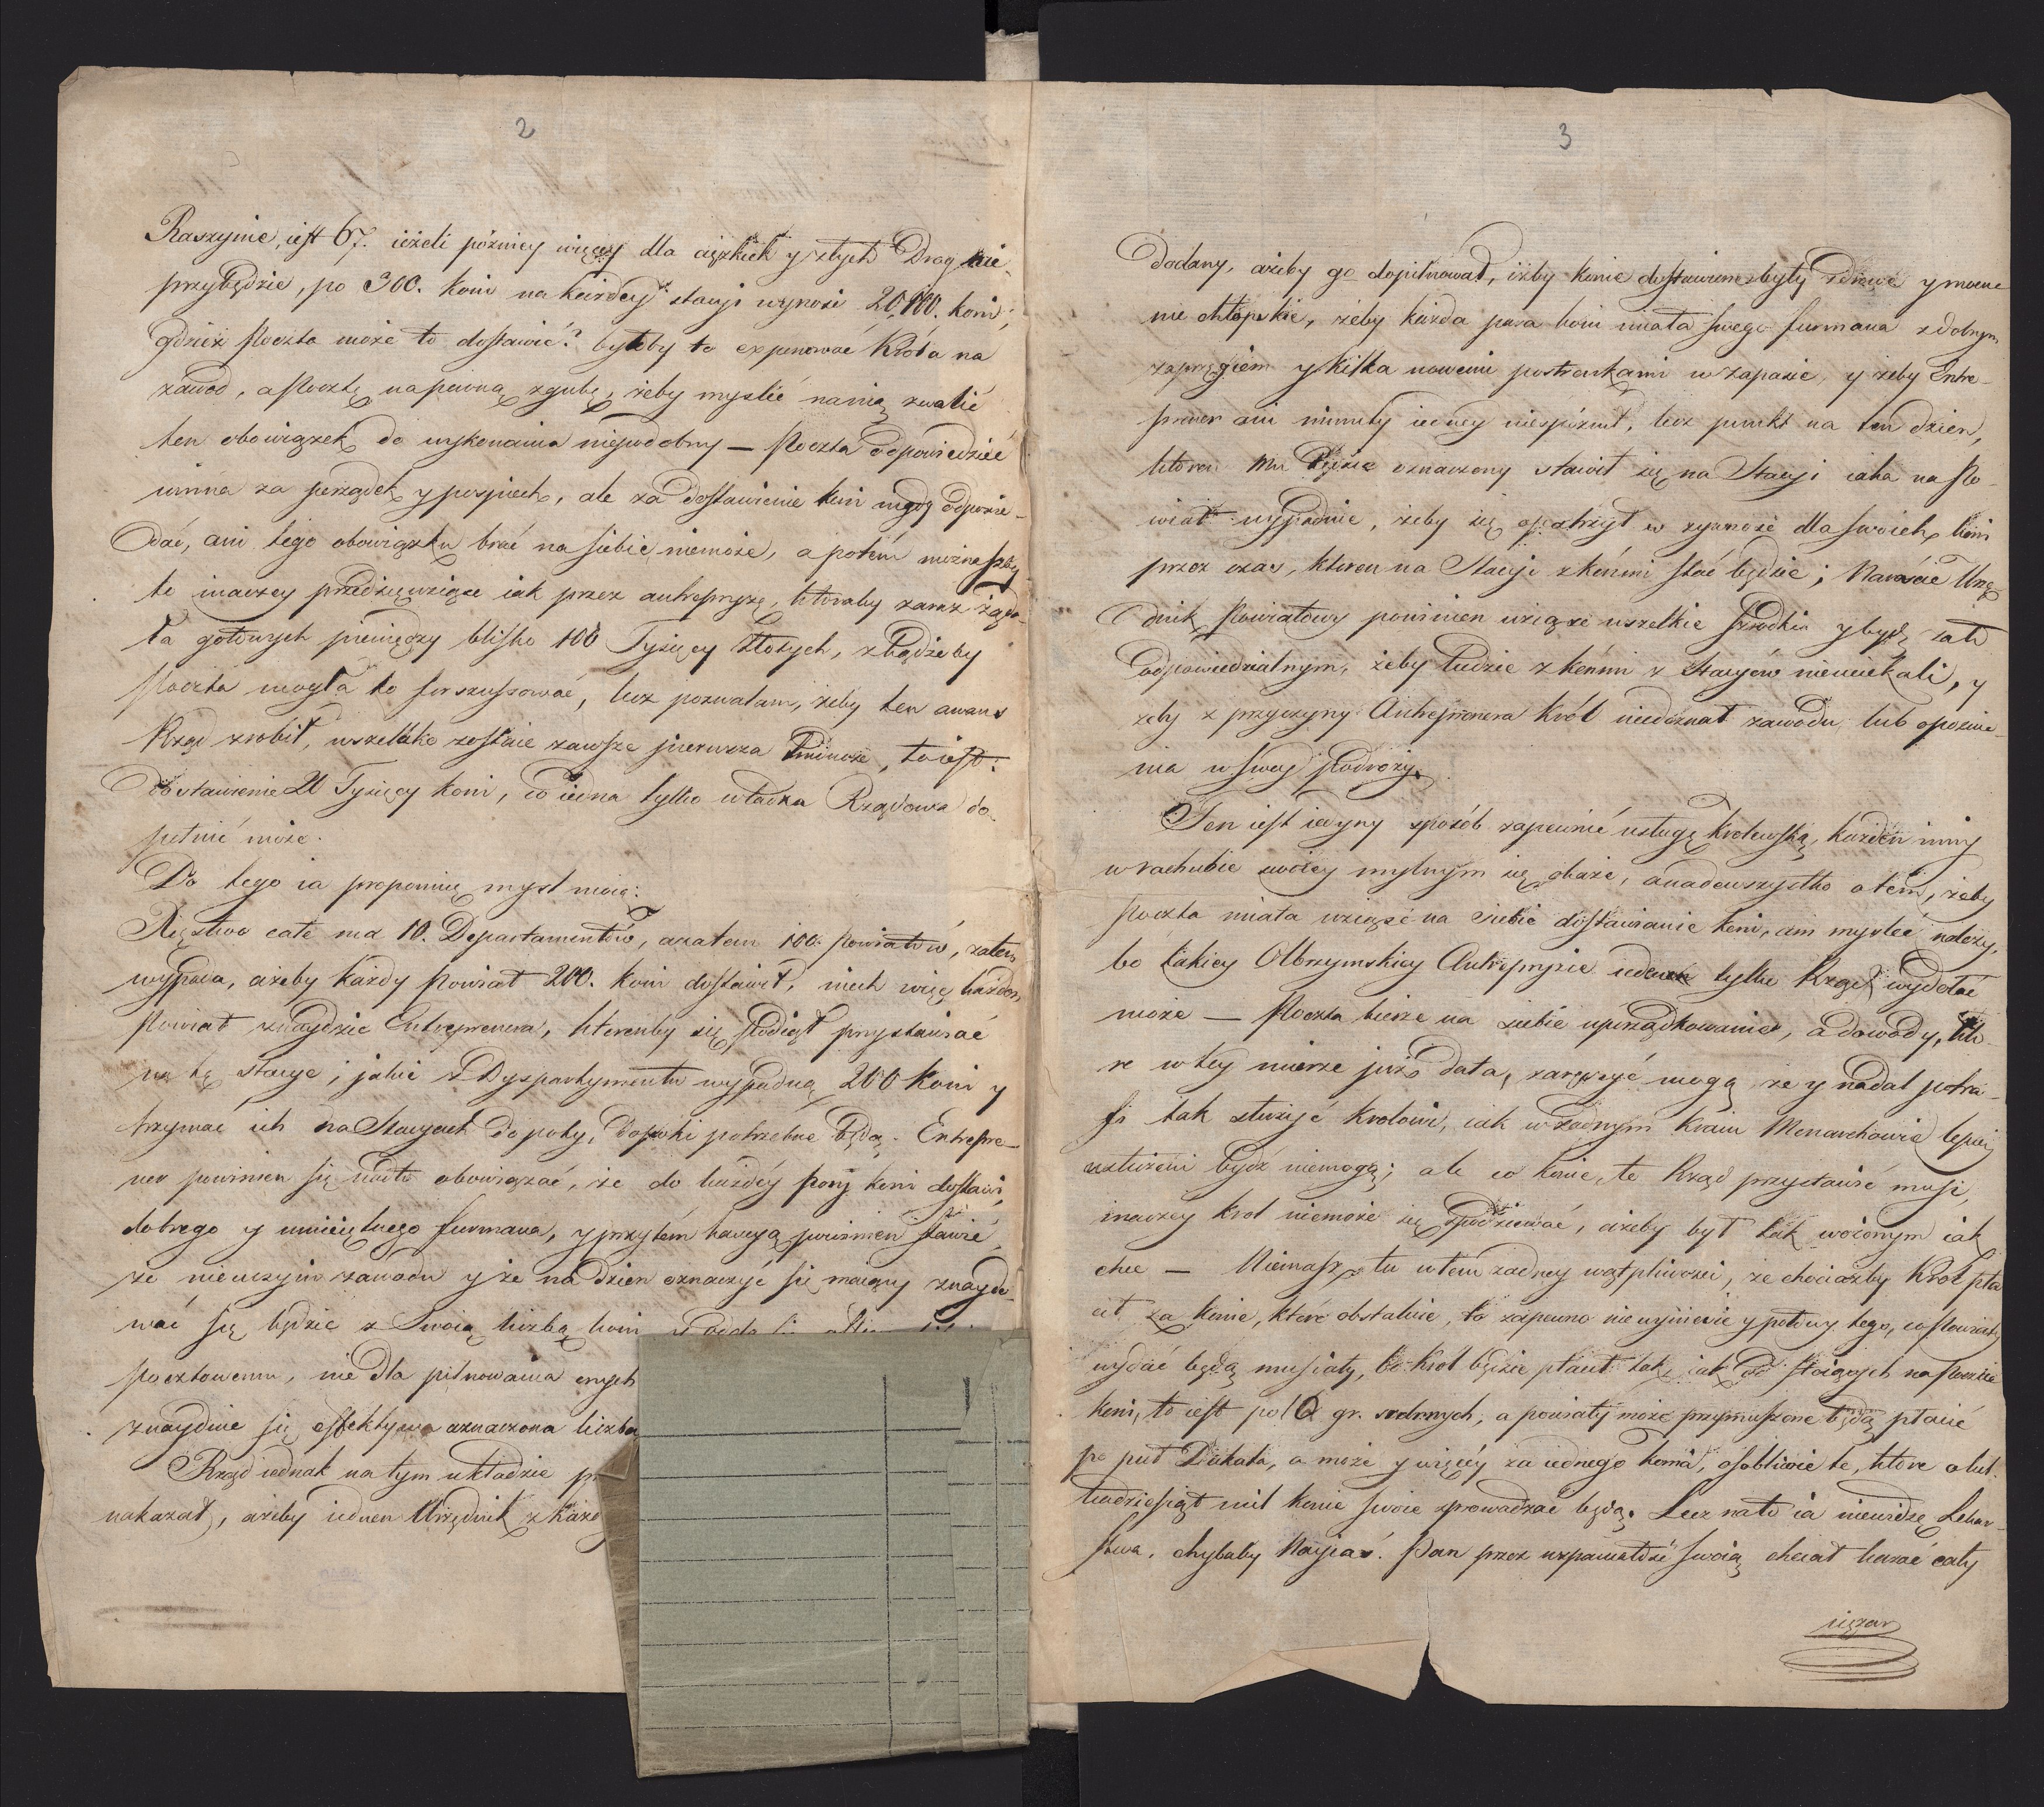 2
Raszynie, iest 67. ieżeli pózniey więcey dla ciężkich y złych Drog nie
przybędzie, po 300. koni na każdey stacji wynosi 20,100. koni;
gdzież Poczta może to dostawić? byłoby to exponować Króla na
zawod, a Pocztę na pewną zgubę, żeby myslić na nią zwalić
ten obowiązek do wykonania niepodobny — Poczta odpowiedzieć
winna za porządek y pospiech, ale za dostawienie koni nigdy odpowie-
dać, ani tego obowiązku brać na siebie niemoże, a potem możnaszby
to inaczey przedsięwziąść iak przez antrepryzę, któraby zaraz żąda-
ła gotowych pieniędzy blisko 100 Tysięcy Złotych, zkądżeby
Poczta mogła to forszussować, lecz pozwalam, żeby ten awans
Rząd zrobił, wszelako zostaie zawsze pierwsza Trudność, to iest:
Dostawienie 20 Tysięcy koni, co iedna tylko władza Rządowa do-
pełnić może.
Do tego ia proponuię mysl moię:
Xięstwo całe ma 10. Departamentów, azatem 100. Powiatów, zatem
wypada, ażeby każdy Powiat 200. koni dostawił, niech więc każden
Powiat znaydzie Entreprenera, ktorenby się Podiął przystawiać
na tę stacye, jakie z Dyspartymentu wypadną 200 Koni y
trzymać ich na Stacyach dopoty, dopoki potrzebne będą. Entrepre-
ner powinien się nadto obowiązać, że do każdéy pary koni dostawi
dobrego y umieiętnego furmana, y przytém kaucyą powinien stawić,
że nie uczyni zawodu y że na dzien oznaczyć się maiący znaydo-
wać się będzie z Swoią liczbą koni
pocztowemu, nie dla pilnowania onych
znaydzie się effektywa oznaczona liczba
Rząd iednak na tym układzie
nakazał, ażeby ieden Urzędnik z każd
3
dodany, ażeby go dopilnował, iżby konie dostawione były zdrowe y mocne
nie chłopskie, żeby każda para koni miała swego furmana z dobrym
zaprzęgiem y kilka nowemi postronkami w zapasie, y żeby Entre-
prener ani minuty iedney niespóznił, lecz punkt na ten dzien,
ktoren mu będzie oznaczony stawił się na Stacyi iaka na Po-
wiat wypadnie, żeby się opatrzył w zywność dla swoich koni
przez czas, ktoren na Stacyi z końmi stać będzie; Naresźcie Urzę-
dnik Powiatowy powinien wziąść wszelkie srzodki y bydź za to
odpowiedzialnym, żeby ludzie z końmi z Stacyów nieuciekali, y
żeby z przyczyny Antreprenera Król niedoznał zawodu, lub opoznie-
nia w swey Podroży.
Ten iest iedyny sposób zapewnić usługę Krolewską, każden inny
w rachubie swoiey mylnym się okaże, anadewszystko o tém, żeby
Poczta miała wziąść na siebie dostawianie koni, ani mysleć należy,
bo takiey Olbrzymskiey Antrepryzie ieden tylko Rząd wydołać
może — Poczta bierze na siebie uporządkowanie, a dowody, kto-
re w tey mierze już dała, zaręczyć mogą że y nadal potra-
fi tak służyć Krolowi, iak w żadnym Kraiu Monarchowie lepiey
usłużeni bydź niemogą; ale co konie, te Rząd przystawić musi,
inaczey Krol niemoże się spodziewać, ażeby był tak wożonym iak
chce — Niemasz tu w tem żadney wątpliwości, że chociażby Krol pła-
cił za konie, które obstaluie, to zapewno niewyniesie y połowy tego, co Powiaty
wydać będą musiały, bo Krol będzie płacił tak iak od stoiących na Poczcie
koni, to iest po 10 gr. srebrnych, a powiaty może przymuszone będą płacić
po puł Dukata, a może y więcéy za iednego Konia, osobliwie te, które o kil-
kadziesiąt mil konie swoie sprowadzać będą. Lecz na to ia niewidzę Lekar-
stwa. chybaby Nayias. Pan przez wspaniałość swoią chciał kazać cały
cięzar